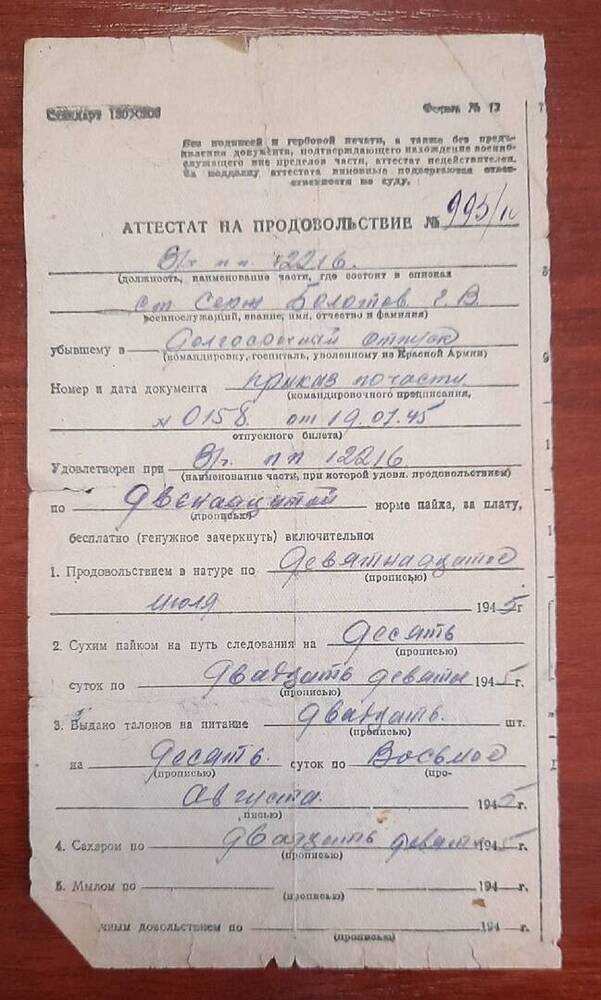 Стандарт
Форма № 12
Без подписей и гербовой печати, а также без предъ-
явления документа, подтверждающего нахождение военно-
служащего вне пределов части, аттестат недействителен.
За подделку аттестата виновные подвергаются ответ-
ственности по суду.
АТТЕСТАТ НА ПРОДОВОЛЬСТВИЕ № 995/
В/ч пп 12216.
(должность, наименование части, где состоит в списках
ст серж Болотов Г. В.
военнослужащий, звание, имя, отчество и фамилия)
убывшему в Долгосрочный отпуск
(командировку, госпиталь, уволенному из Красной Армии)
Номер и дата документа приказ по части
(командировочного предписания,
№ 0158 от 19.07.45
отпускного билета)
Удовлетворен при В/ч пп 12216.
(наименование части, при которой удовл. продовольствием)
по двенадцатой норме пайка, за плату,
(прописью)
бесплатно (ненужное зачеркнуть) включительно:
1. Продовольствием в натуре по девятнадцатое
(прописью)
июля 1945г
2. Сухим пайком на путь следования на десять
(прописью)
суток по двадцать девятое 1945г.
(прописью)
3. Выдано талонов на питание двадцать. шт.
(прописью)
на десять. суток по Восьмое
(прописью) (про-
Августа. 1945г.
писью)
4. Сахаром по двадцать девятое 1945г.
(прописью)
5. Мылом по 194 г.
(прописью)
чным довольствием по 194 г.
(прописью)